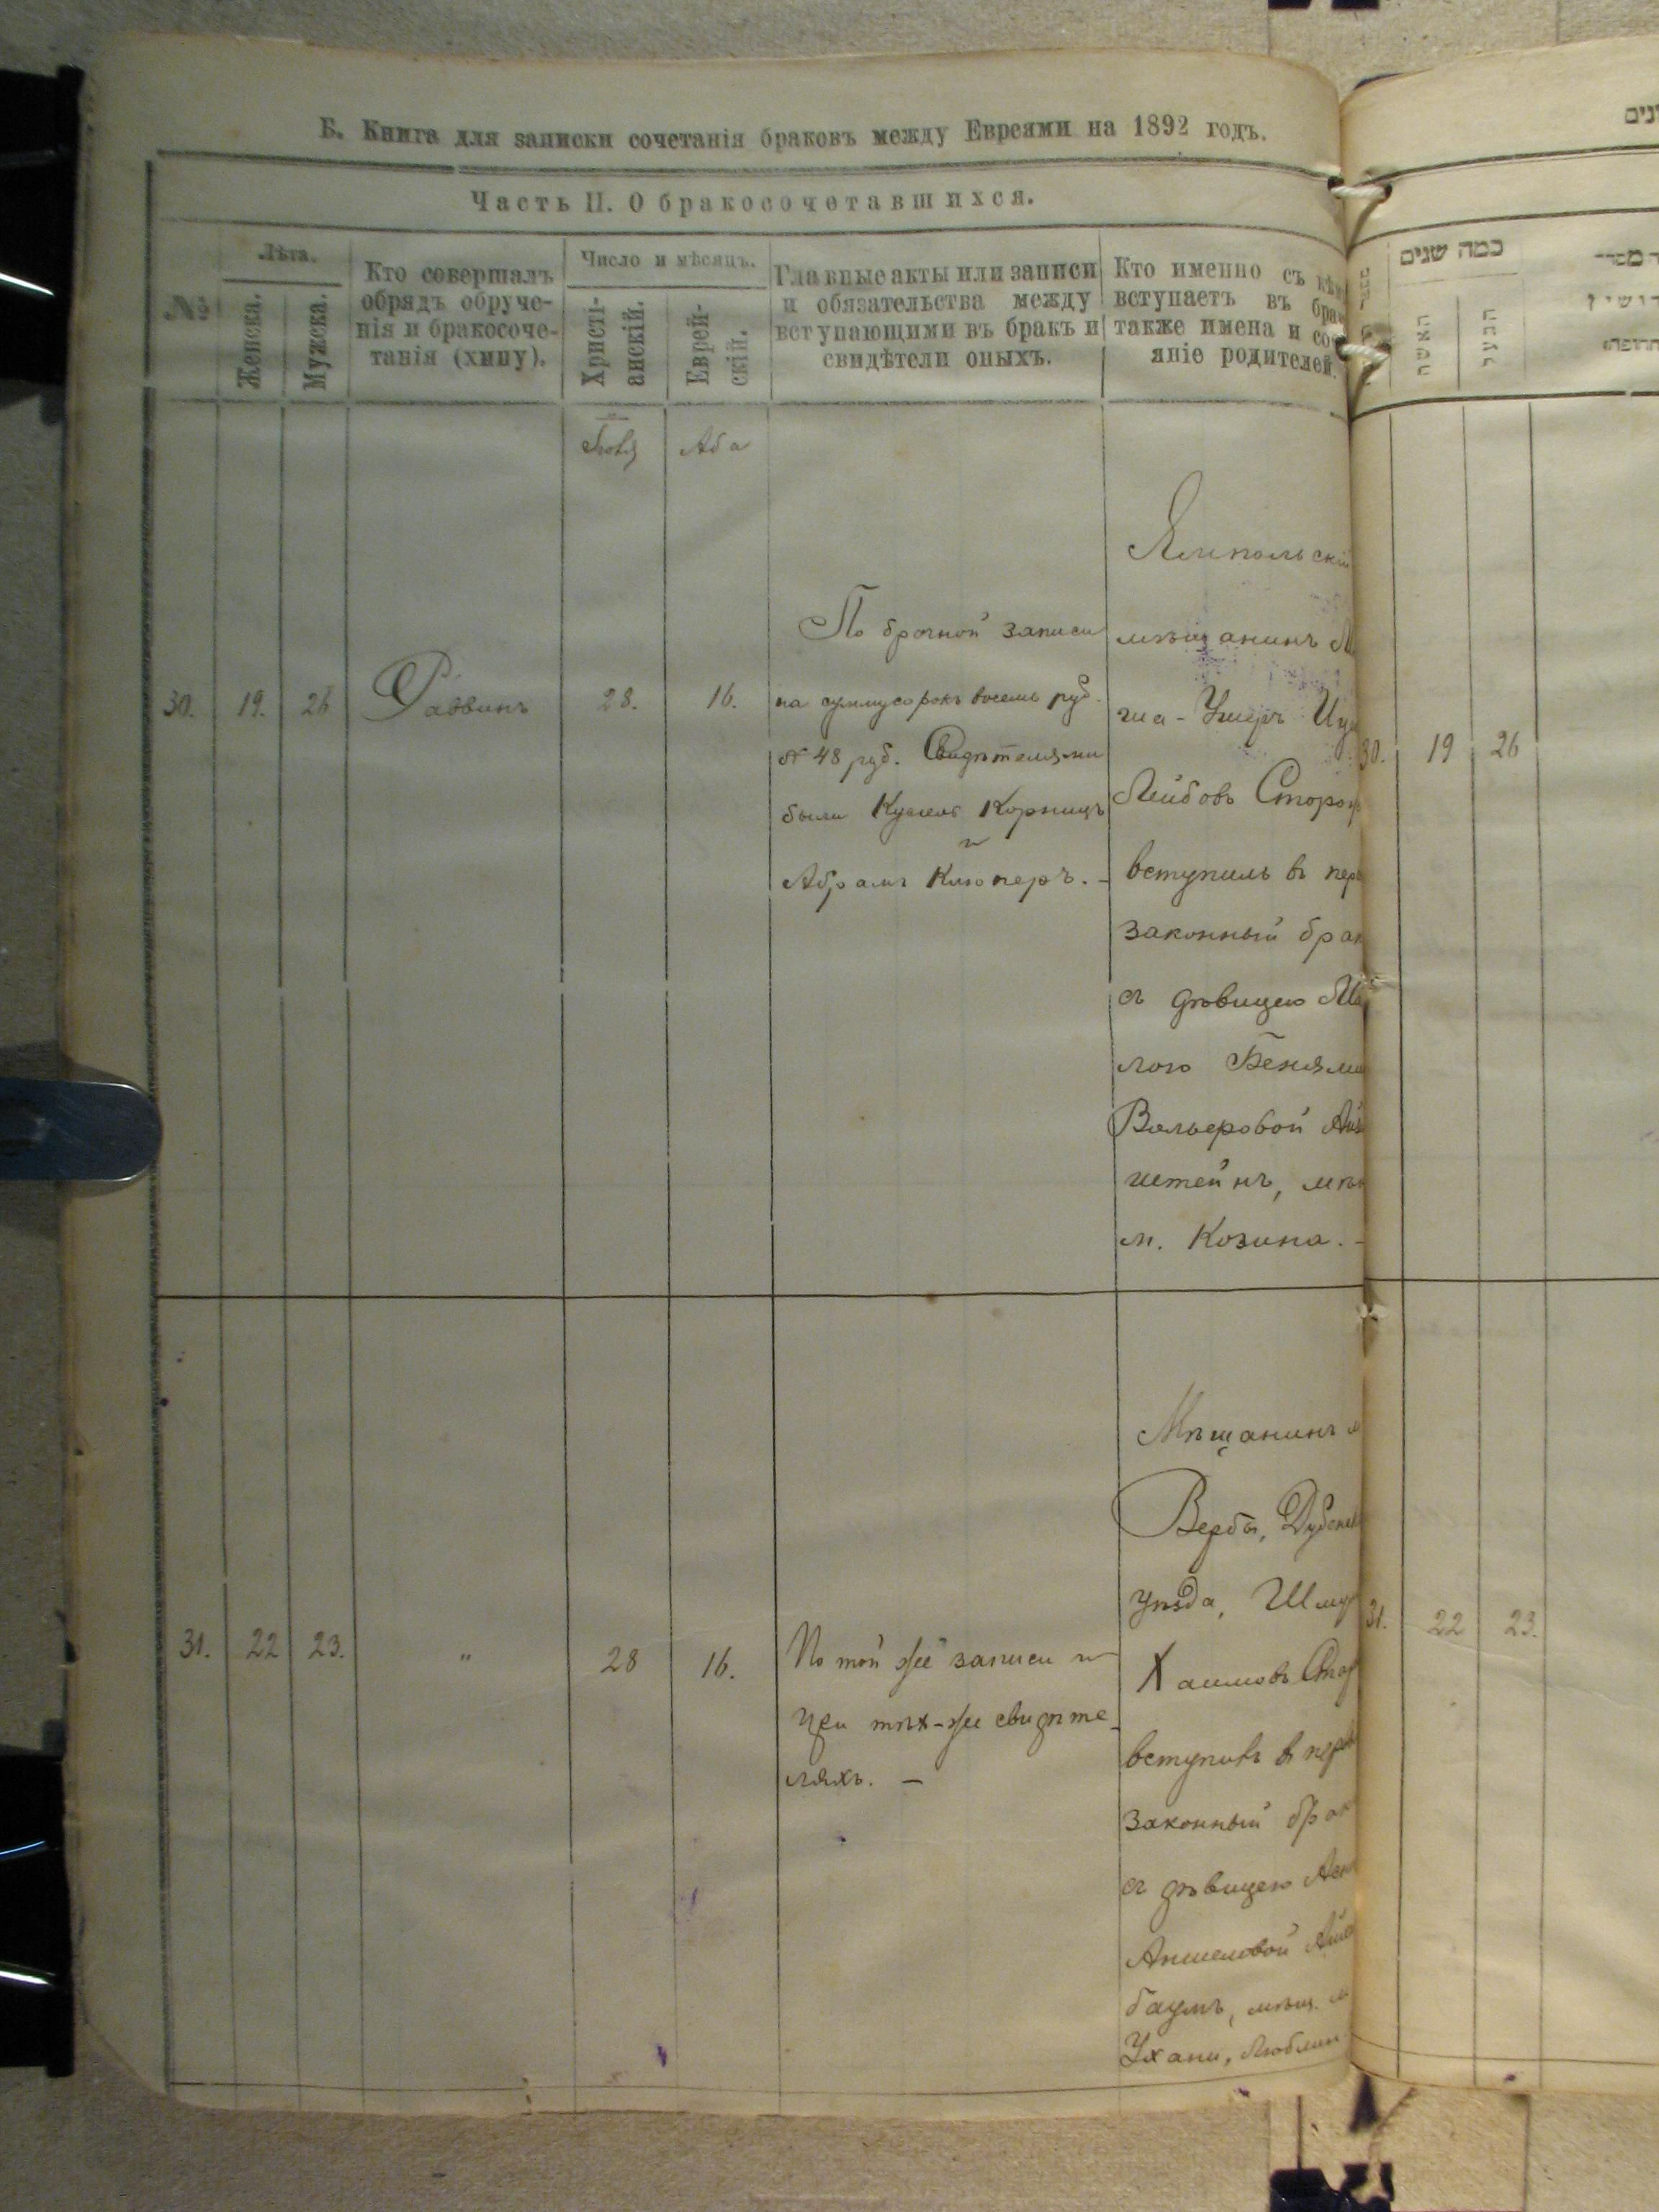 Б. Книга для записки сочетанія браковъ между Евреями на 1892 годъ.
Часть II. О бракосочетавшихся.
№
Лѣта.
Женска.
Мужска.
Кто совершалъ
обрядъ обруче-
нія и бракосоче-
танія (хипу).
Число и мѣсяцъ.
Христі-
анскій.
Еврей-
скій.
Главные акты или записи
и обязательства между
вступающими въ бракъ и
свидѣтели оныхъ.
Кто именно съ кѣм
вступаетъ въ бра
также имена и со
яніе родителей.
Аба
30.
19.
26
Раввинъ
28.
16.
По брачной записи
на сумму сорокъ восемь руб.
48 руб. Свидѣтелями
были Корницъ
и
Абрамъ Клюперъ. -
Ямпольскій
мѣщанинъ
ша-Ушеръ Иц
Лейбовъ Сторо
вступилъ въ пер
законный брак
съ дѣвицею Ма
лою Бенями
Вольеровой
штейнъ, мѣщ
м. Козина. -
31.
22
23.
"
28
16.
По той же записи и
при тѣхъ-же свидѣте-
ляхъ. -
Мѣщанинъ м
Верба, Дубенск
уѣзда, Шму
Хаимовъ Стор
вступивъ въ перв
законный брак
съ дѣвицею
Аншеловой
баумъ, мѣщ. м
Ухани, Люблин
כמה שנים
האשה
הנער
30.
19
26
31.
22
23.